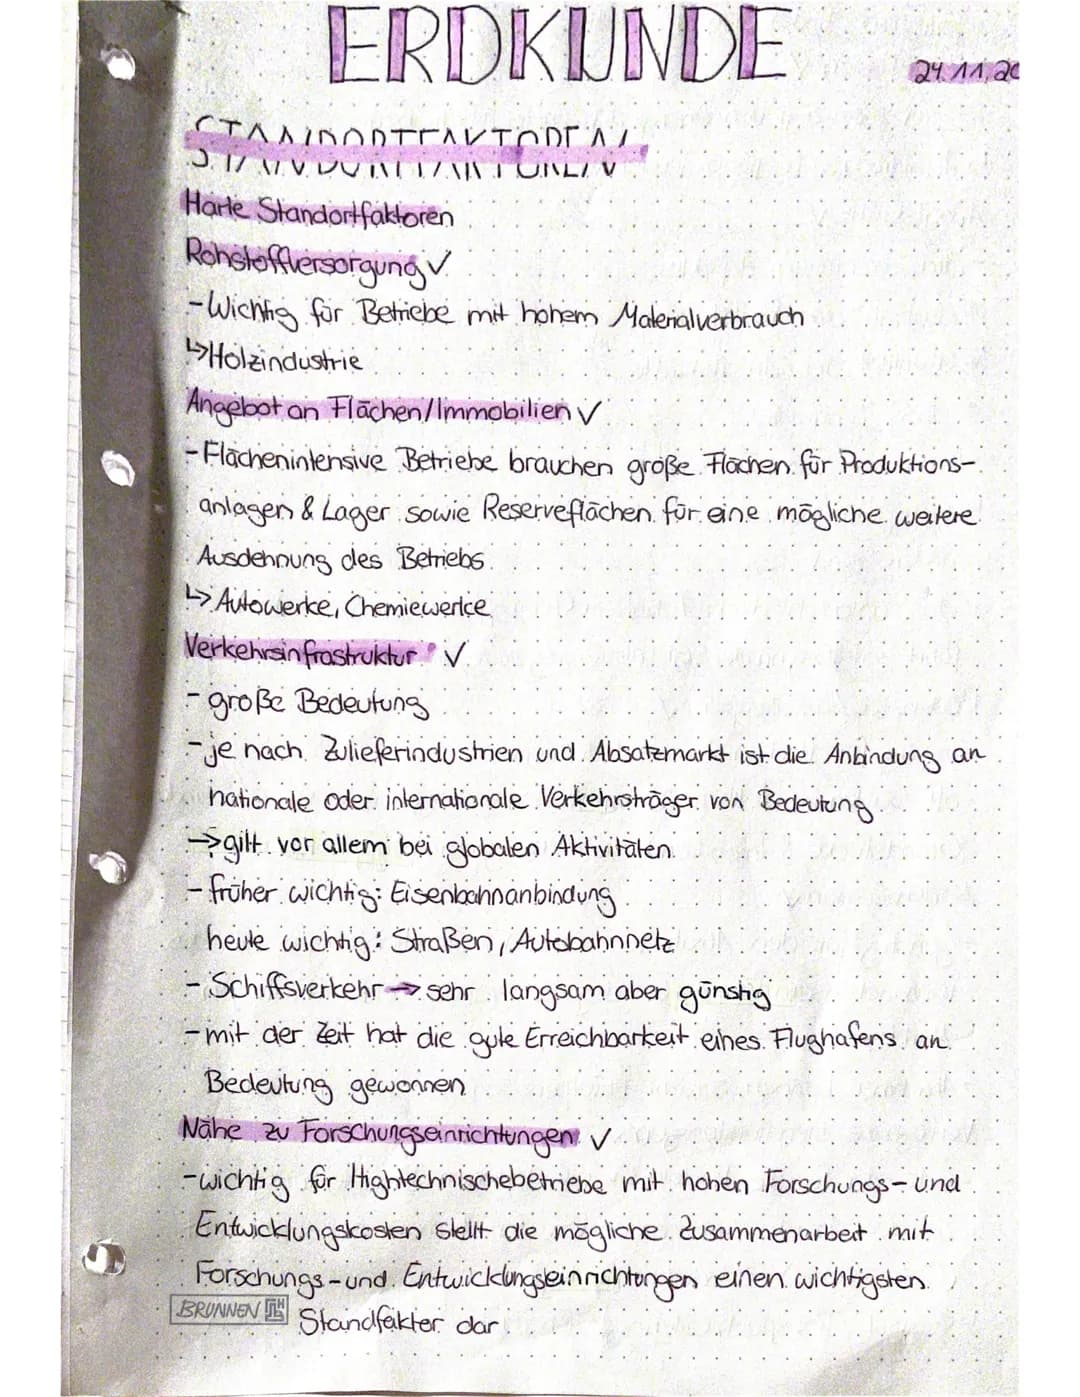 ERDKUNDE
24.11.20
STANDORTFAKTOREN
Harte Standortfaktoren
Rohstoffversorgung ✓
- Wichtig für Betriebe mit hohem Materialverbrauch
↳ Holzindustrie
Angebot an Flächen/Immobilien ✓
- Flächenintensive Betriebe brauchen große Flächen für Produktions-
anlagen & Lager sowie Reserveflächen für eine mögliche weitere
Ausdehnung des Betriebs
↳ Autowerke, Chemiewerke
Verkehrsinfrastruktur ✓
- große Bedeutung
- je nach Zulieferindustrien und Absatzmarkt ist die Anbindung an
nationale oder internationale Verkehrsträger von Bedeutung
→ gilt vor allem bei globalen Aktivitäten
- früher wichtig: Eisenbahnanbindung
heute wichtig: Straßen, Autobahnnetz
- Schiffsverkehr → sehr langsam aber günstig
- mit der Zeit hat die gute Erreichbarkeit eines Flughafens an
Bedeutung gewonnen
Nähe zu Forschungseinrichtungen ✓
- wichtig für Hightechnischebetriebe mit hohen Forschungs- und
Entwicklungskosten stellt die mögliche Zusammenarbeit mit
Forschungs- und Entwicklungseinrichtungen einen wichtigsten
BRUNNEN Standfakter dar